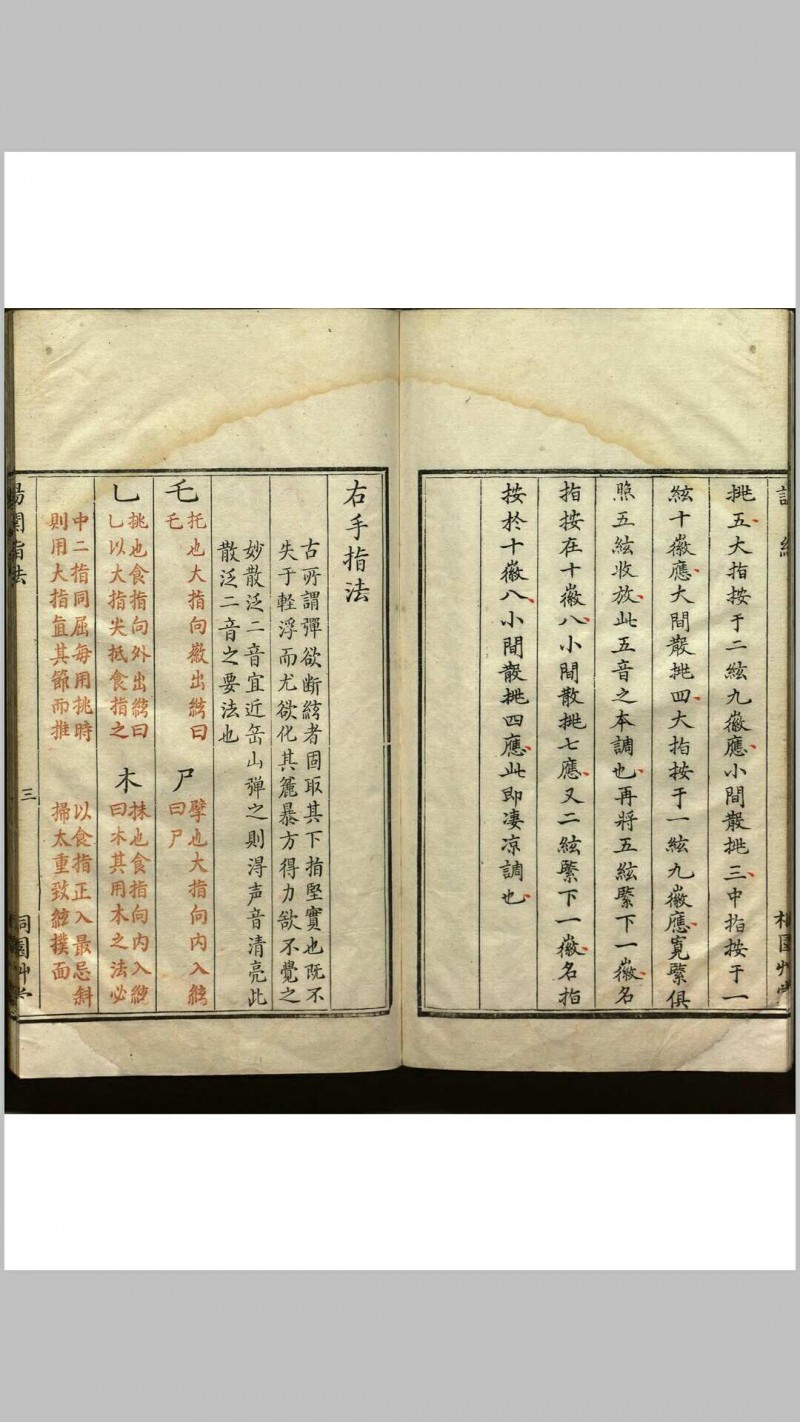 挑五大指按于二絃九徽應小間散挑三中指按于一
絃十徽應大間散挑四大指按于一絃九徽應寬緊俱
照五絃收放此五音之本調也再將五絃緊下一徽名
指按在十徽八小間散挑七應又二絃緊下一徽名指
按於十徽八小間散挑四應此即凄凉調也
右手指法
古所謂彈欲断絃者固取其下指堅實也既不
失于軽浮而尤欲化其麄暴方得力欲不覺之
妙散泛二音宜近岳山弹之則淂声音清亮此
散泛二音之要法也
乇
托也大指向徽出絃曰
乇
尸
擘也大指向内入絃
曰尸
乚
挑也食指向外出絃曰
乚以大指尖抵食指之
木
抹也食指向内入絃
曰木其用木之法必
中二指同屈每用挑時
則用大指直其節而推
以食指正入最忌斜
掃太重致絃撲面
指法
三